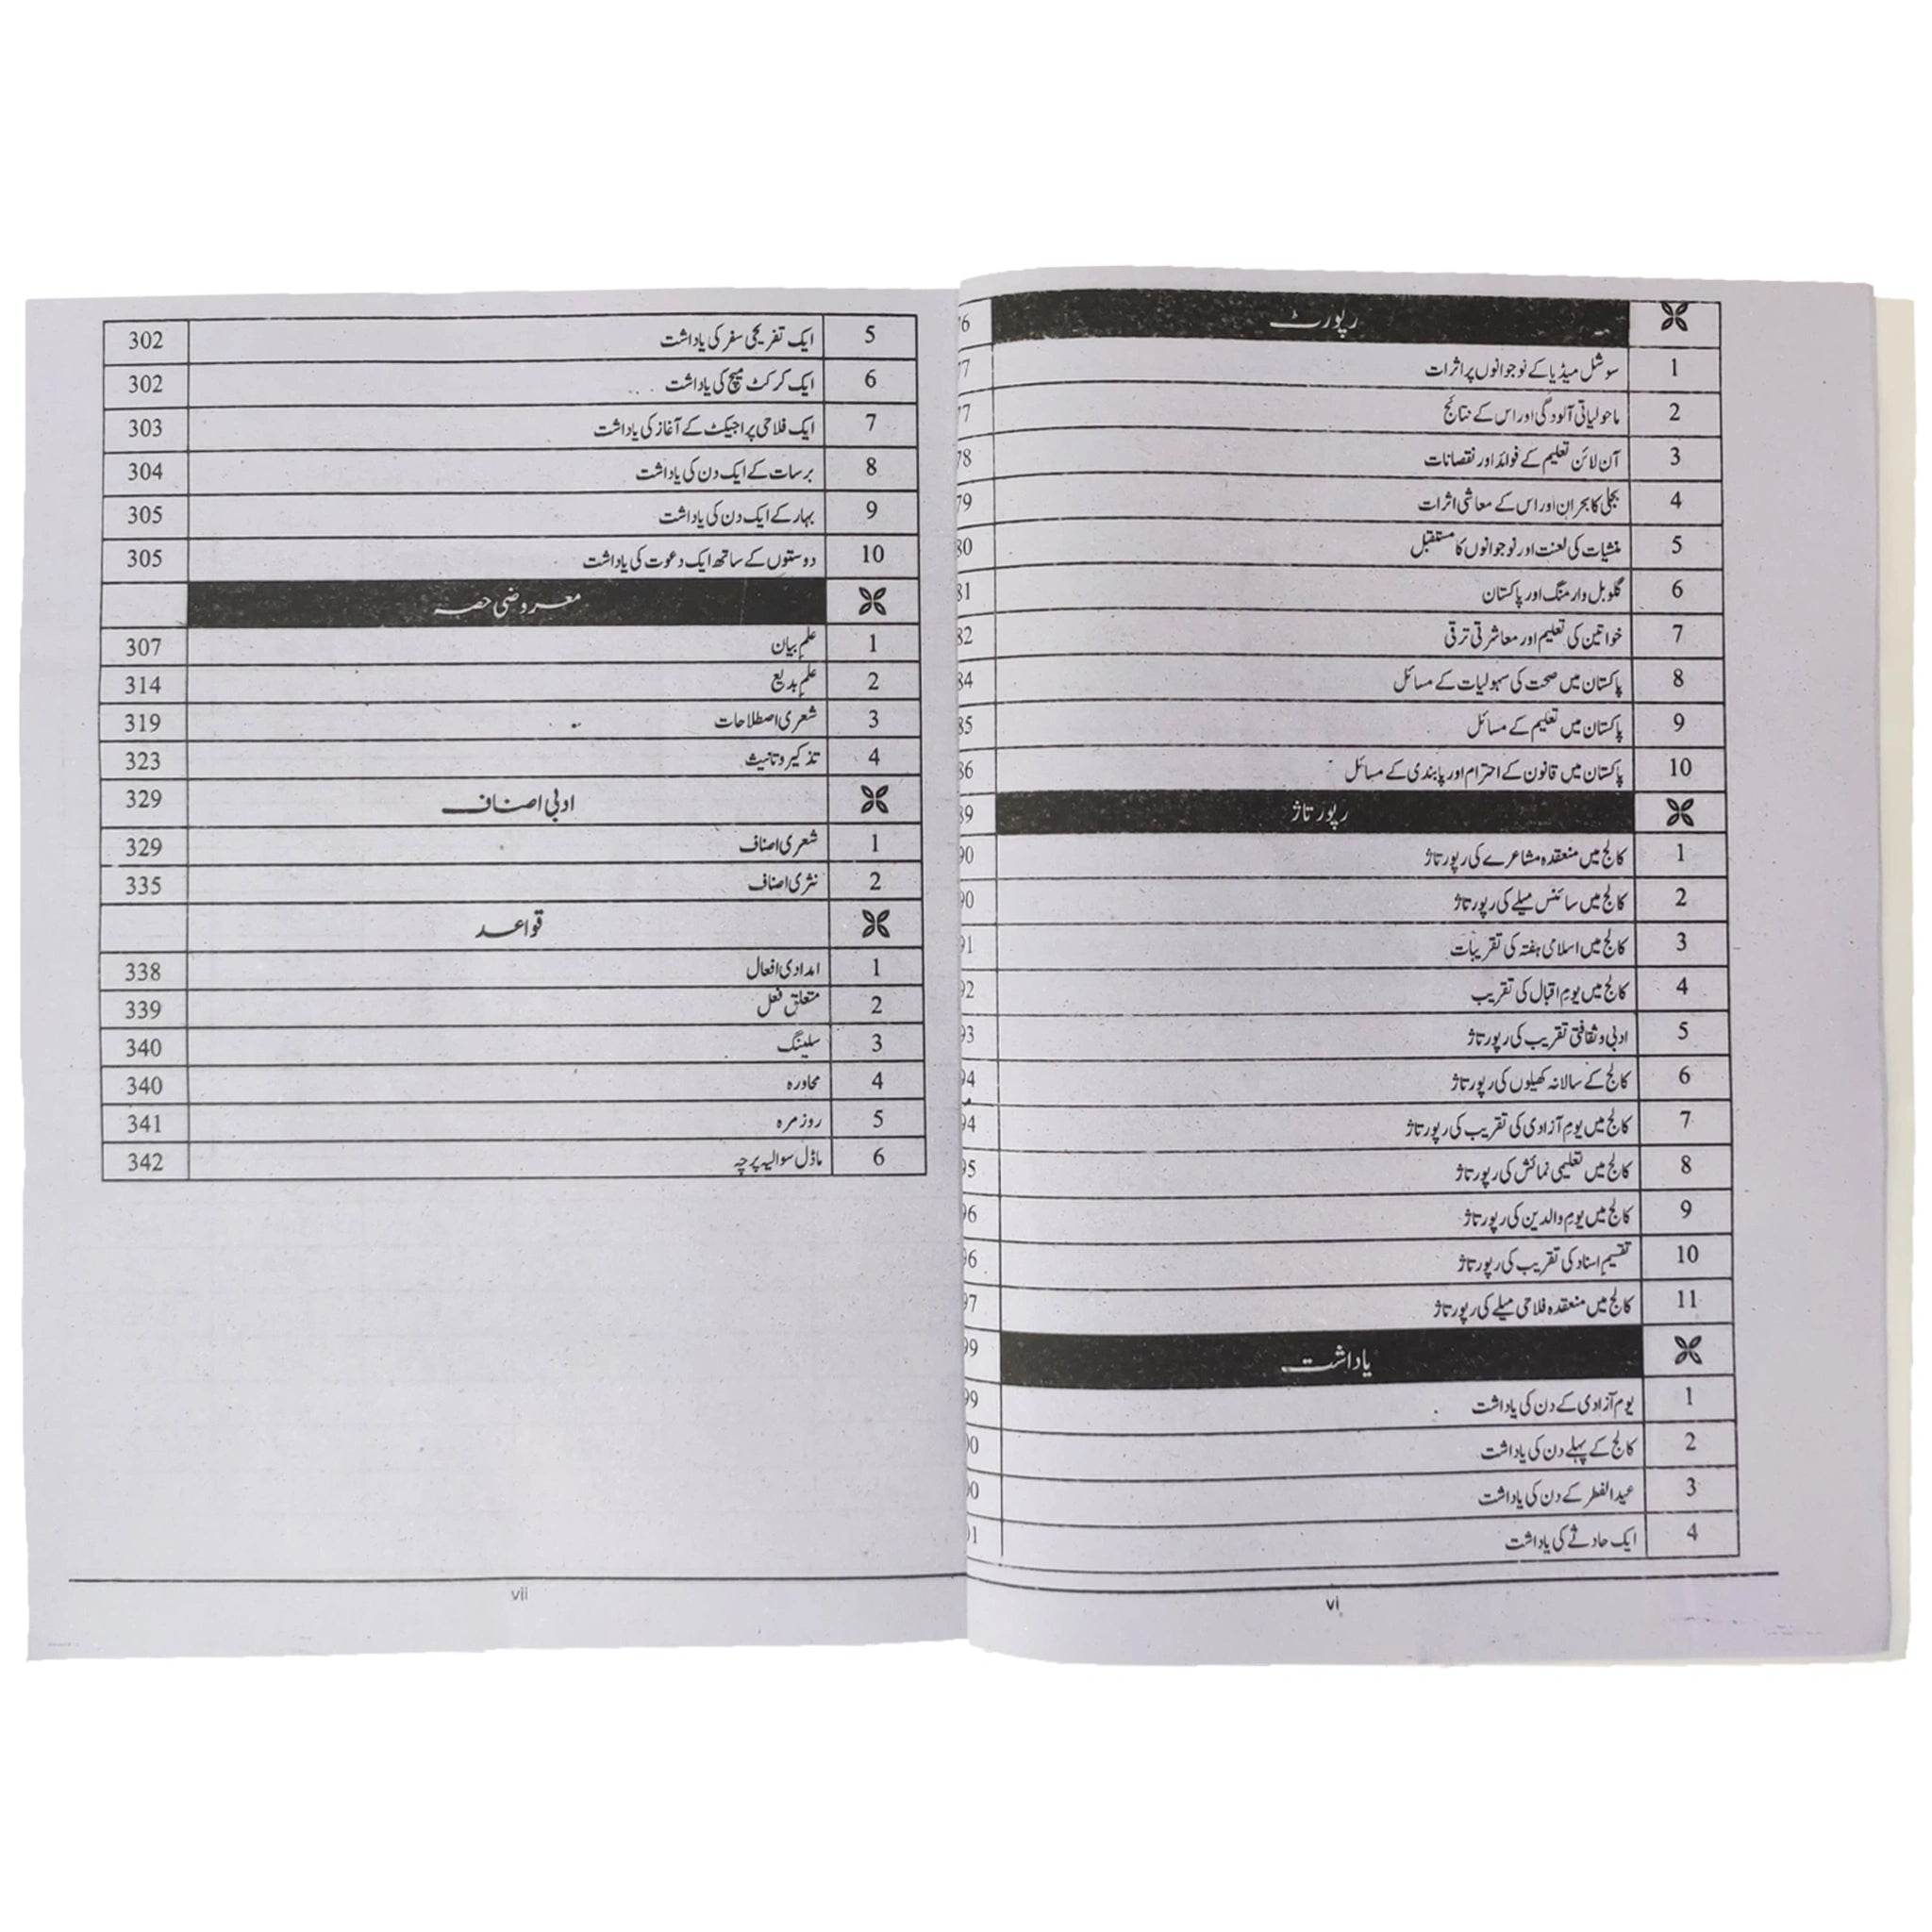 رپورٹ 76
1 سوشل میڈیا کے نوجوانوں پر اثرات 77
2 ماحولیاتی آلودگی اور اس کے نتائج 77
3 آن لائن تعلیم کے فوائد اور نقصانات 78
4 بجلی کا بحران اور اس کے معاشی اثرات 79
5 منشیات کی لعنت اور نوجوانوں کا مستقبل 80
6 گلوبل وارمنگ اور پاکستان 81
7 خواتین کی تعلیم اور معاشرتی ترقی 82
8 پاکستان میں صحت کی سہولیات کے مسائل 84
9 پاکستان میں تعلیم کے مسائل 85
10 پاکستان میں قانون کے احترام اور پابندی کے مسائل 86
رپورتاژ 89
1 کالج میں منعقدہ مشاعرے کی رپورتاژ 90
2 کالج میں سائنس میلے کی رپورتاژ 90
3 کالج میں اسلامی ہفتہ کی تقریبات 91
4 کالج میں یومِ اقبال کی تقریب 92
5 ادبی و ثقافتی تقریب کی رپورتاژ 93
6 کالج کے سالانہ کھیلوں کی رپورتاژ 94
7 کالج میں یومِ آزادی کی تقریب کی رپورتاژ 94
8 کالج میں تعلیمی نمائش کی رپورتاژ 95
9 کالج میں یومِ والدین کی رپورتاژ 96
10 تقسیمِ اسناد کی تقریب کی رپورتاژ 96
11 کالج میں منعقدہ فلاحی میلے کی رپورتاژ 97
یاداشت 99
1 یوم آزادی کے دن کی یاداشت 99
2 کالج کے پہلے دن کی یاداشت 00
3 عید الفطر کے دن کی یاداشت 00
4 ایک حادثے کی یاداشت 01
vi
5 ایک تفریحی سفر کی یاداشت 302
6 ایک کرکٹ میچ کی یاداشت 302
7 ایک فلاحی پراجیکٹ کے آغاز کی یاداشت 303
8 برسات کے ایک دن کی یاداشت 304
9 بہار کے ایک دن کی یاداشت 305
10 دوستوں کے ساتھ ایک دعوت کی یاداشت 305
معروضی حصہ
1 علمِ بیان 307
2 علمِ بدیع 314
3 شعری اصطلاحات 319
4 تذکیر و تانیث 323
ادبی اصناف 329
1 شعری اصناف 329
2 نثری اصناف 335
قواعد
1 امدادی افعال 338
2 متعلق فعل 339
3 سلینگ 340
4 محاورہ 340
5 روزمرہ 341
6 ماڈل سوالیہ پرچہ 342
vii